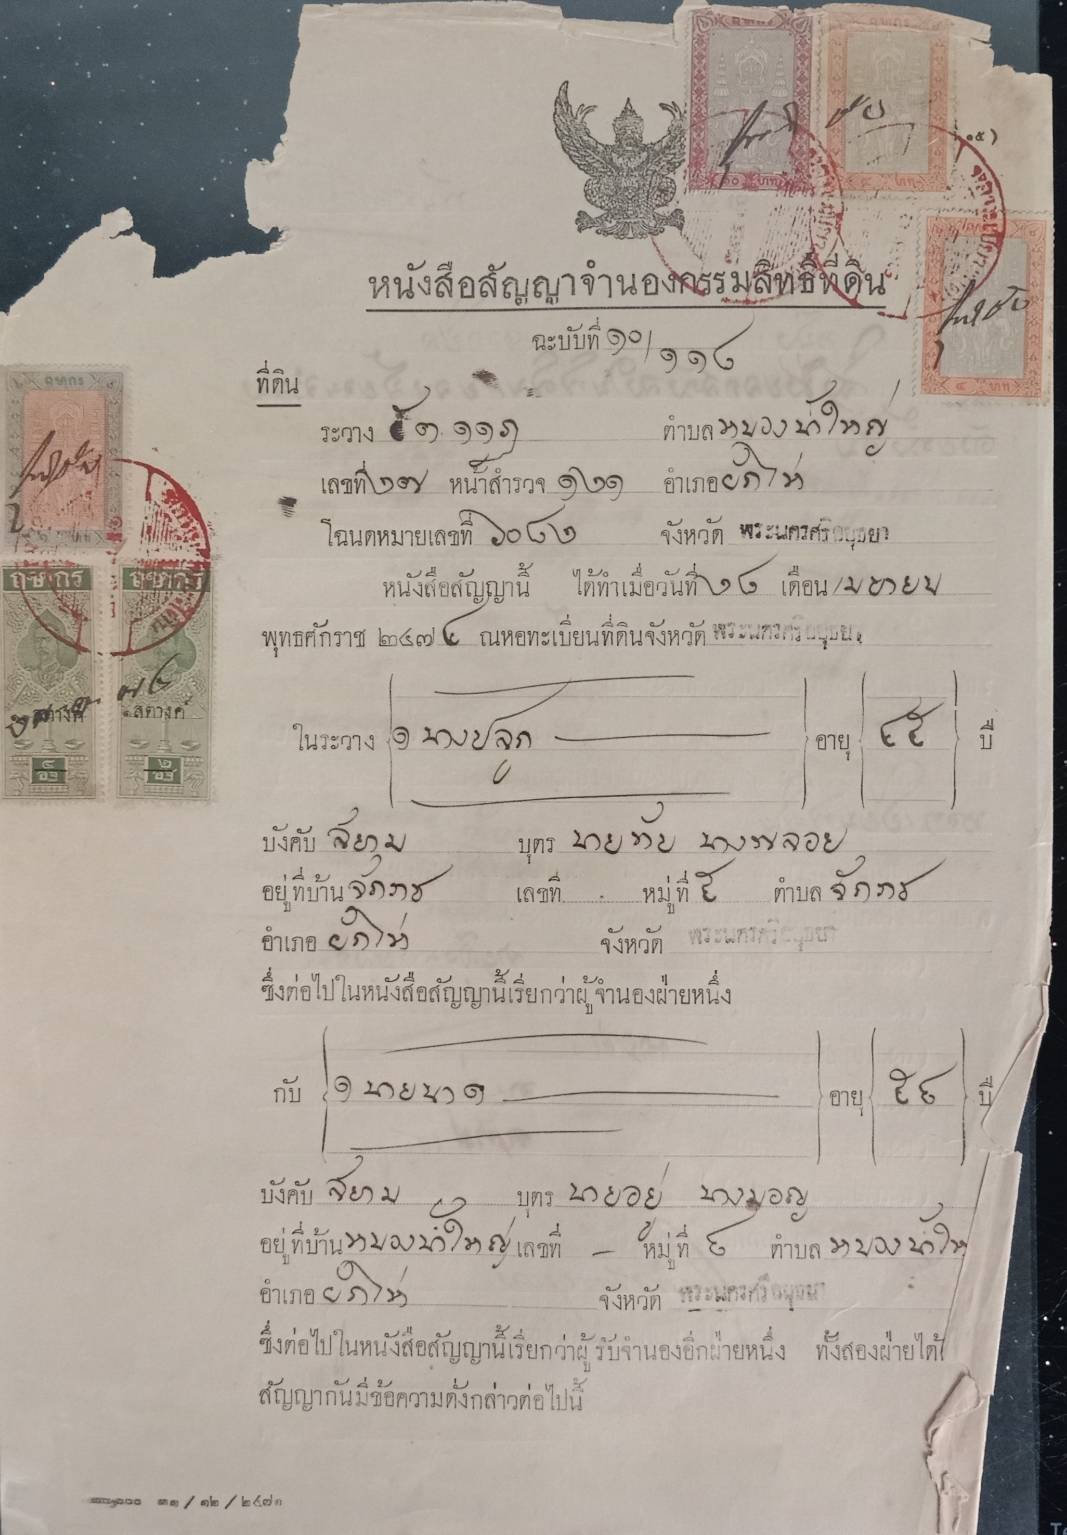 อากร
อากร
๑๐ บาท
๔ บาท
๑๕)
หนังสือสัญญาจำนองกรรมสิทธิ์ที่ดิน
ฉะบับที่ ๑๐/๑๑๘
ที่ดิน
ระวาง ตำบล หนองน้ำใหญ่
เลขที่ ๖๗ หน้าสำรวจ ๑๖๑ อำเภอ ผักไห่
โฉนดหมายเลขที่ จังหวัด พระนครศรีอยุธยา
หนังสือสัญญานี้ ได้ทำเมื่อวันที่ ๒๘ เดือน เมษายน
พุทธศักราช ๒๔๗๔ ณหอทะเบียนที่ดินจังหวัด พระนครศรีอยุธยา
ในระวาง ๑ นางปลูก อายุ ๔๕ ปี
บังคับ สยาม บุตร นายทัย นางพลอย
อยู่ที่บ้าน จักราช เลขที่ หมู่ที่ ๕ ตำบล จักราช
อำเภอ ผักไห่ จังหวัด พระนครศรีอยุธยา
ซึ่งต่อไปในหนังสือสัญญานี้เรียกว่าผู้จำนองฝ่ายหนึ่ง
กับ ๑ นายนาค อายุ ๕๘ ปี
บังคับ สยาม บุตร นายอยู่ นาง
อยู่ที่บ้าน หนองน้ำใหญ่ เลขที่ — หมู่ที่ ๘ ตำบล หนองน้ำให
อำเภอ ผักไห่ จังหวัด พระนครศรีอยุธยา
ซึ่งต่อไปในหนังสือสัญญานี้เรียกว่าผู้รับจำนองอีกฝ่ายหนึ่ง ทั้งสองฝ่ายได้
สัญญากันมีข้อความดั่งกล่าวต่อไปนี้
๓๑/๑๒/๒๔๗๓
อากร
ฤชากร
ฤชากร
สตางค์
สตางค์